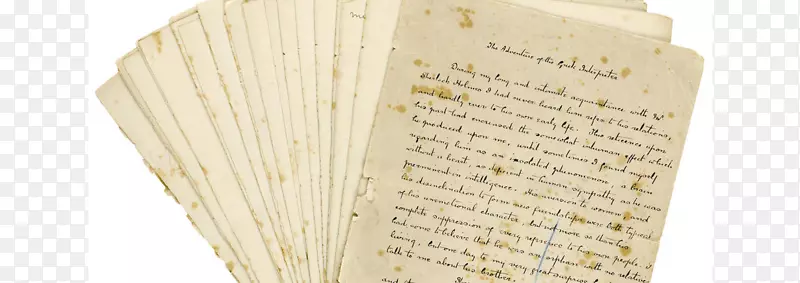 me
The Adventure of the Greek Interpreter
During my long and intimate acquaintance with Mr
Sherlock Holmes I had never heard him refer to his relations,
and hardly ever to his own early life. This reticence upon
his part had increased the somewhat inhuman effect which
he produced upon me, until sometimes I found myself
regarding him as an isolated phenomenon, a brain
without a heart, as deficient in human sympathy as he was
preeminent in intelligence. His aversion to women and
his disinclination to form new friendships were both typical
of his unemotional character, but not more so than his
complete suppression of every reference to his own people. I
had come to believe that he was an orphan with no relatives
living, but one day to my very great surprise he
talk to me about his brother.